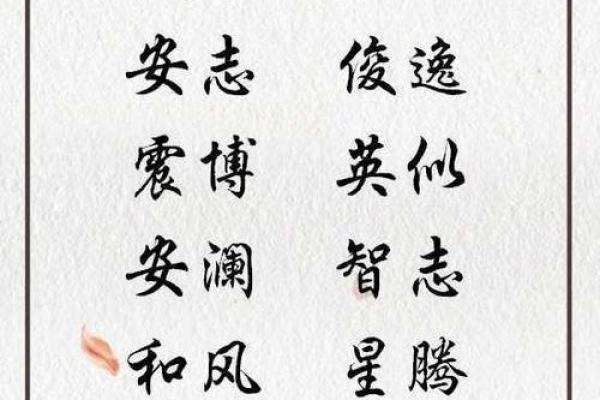 安志 俊逸
震博 英似
安澜 智志
和风 星腾